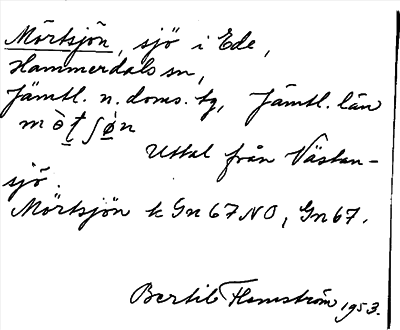 Mörtsjön, sjö i Ede,
Hammerdals sn,
Jämtl. n. doms. tg, Jämtl. län
Uttal från Västan-
sjö.
Mörtsjön k Gn 67 NO, Gn 67.
Bertil Flemström 1953.